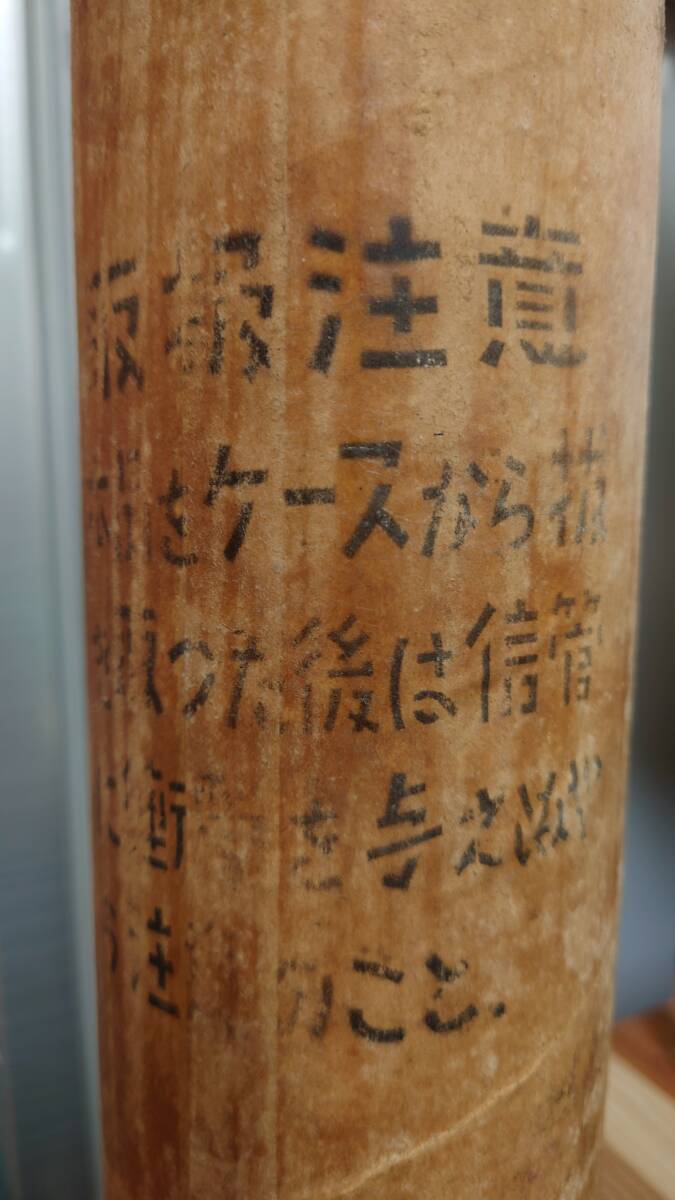 取扱注意
をケースから抜
取った後は信管
に衝 を与えぬや
う注 のこと.